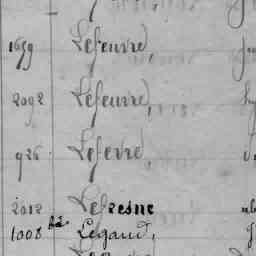 1659 Lefeuvre
2092 Lefeuvre,
926 Lefevre,
2012 Lefresne
1008 bis Legaud,